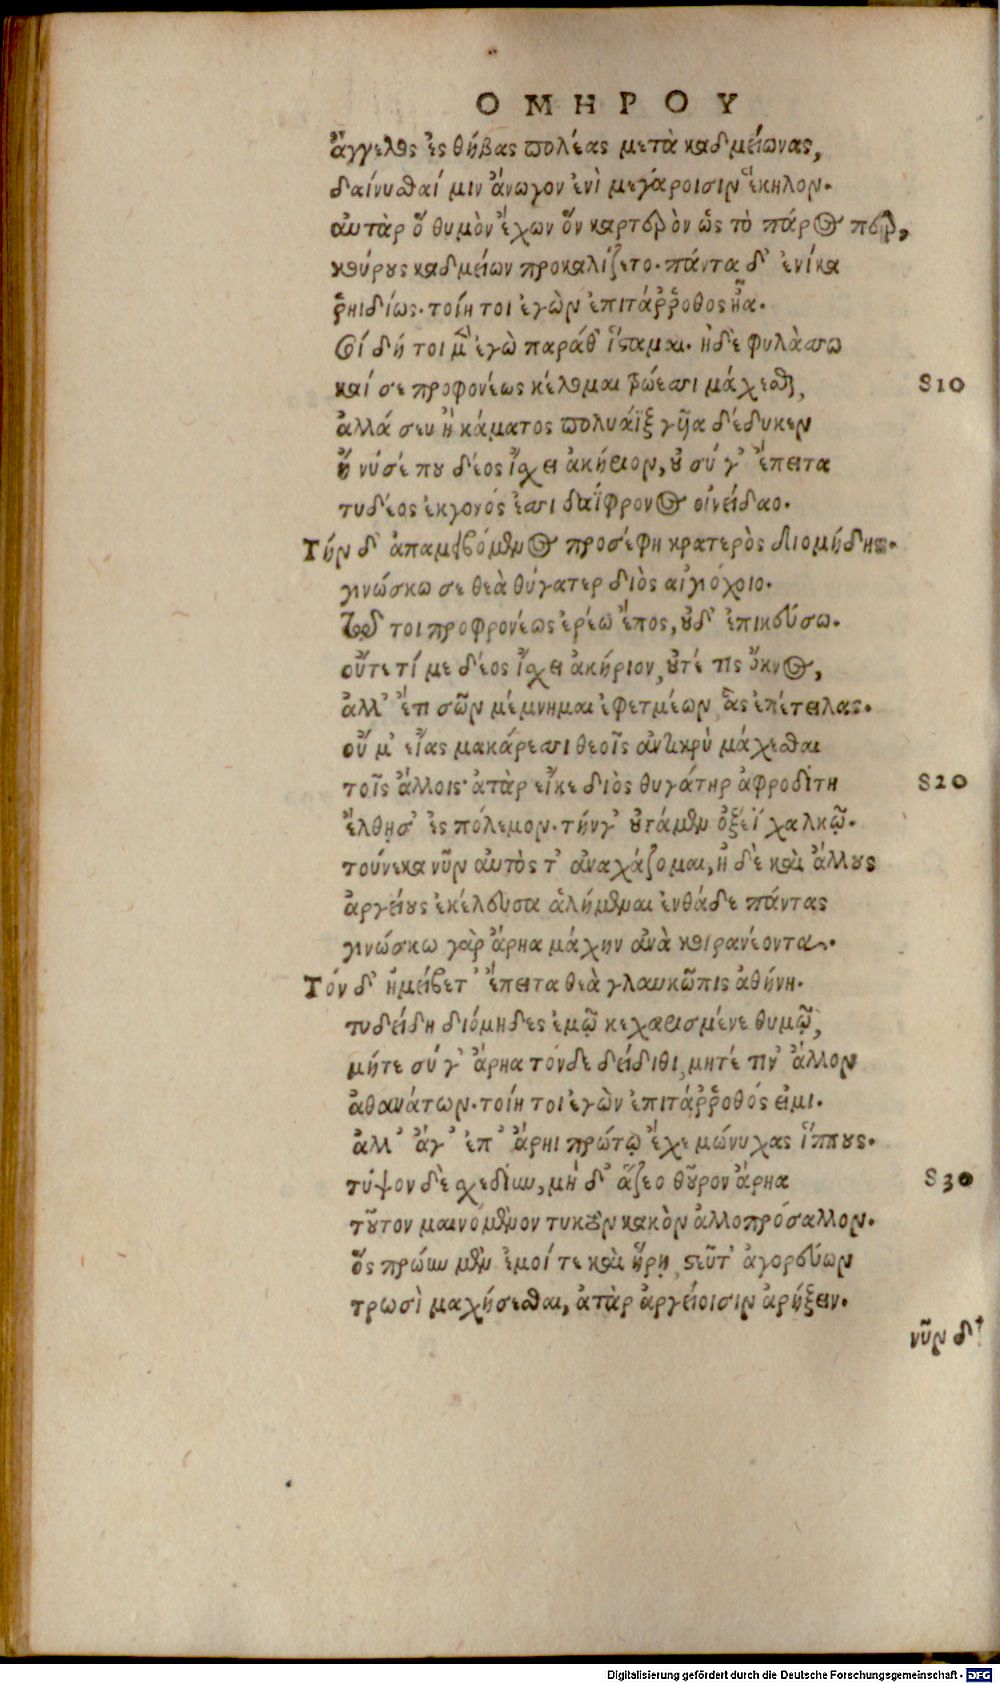 ΟΜΗΡΟΥ
ἄγγελος ἐς θήβας πολέας μετὰ καδμείωνας,
δαίνυσθαί μιν ἄνωγον ἐνὶ μεγάροισιν ἕκηλον.
αὐτὰρ ὃ θυμὸν ἔχων ὃν καρτερὸν ὡς τὸ πάρος περ,
κούρους καδμείων προκαλίζετο. πάντα δ' ἐνίκα
ῥηιδίως. τοίη τοι ἐγὼν ἐπιτάῤῥοθος ἦα.
Σοὶ δή τοι μὲν ἐγὼ παράθ' ἵσταμαι. ἠδὲ φυλάσσω
καί σε προφονέως κέλομαι τρώεσσι μάχεσθαι,
ἀλλά σευ ἢ κάματος πολυάϊξ γυῖα δέδυκεν
ἤ νύ σέ που δέος ἴσχει ἀκήριον, οὐ σύ γ' ἔπειτα
τυδέος ἐκγονός ἐσσι δαΐφρονος οἰνείδαο.
Τὴν δ' ἀπαμειβόμενος προσέφη κρατερὸς διομήδης.
γινώσκω σε θεὰ θύγατερ διὸς αἰγιόχοιο.
Τῷ τοι προφρονέως ἐρέω ἔπος, οὐδ' ἐπικεύσω.
οὔτε τί με δέος ἴσχει ἀκήριον, οὔτέ τις ὄκνος,
ἀλλ' ἔτι σῶν μέμνημαι ἐφετμέων ἃς ἐπέτειλας.
οὔ μ' εἴας μακάρεσσι θεοῖς ἀντικρὺ μάχεσθαι
τοῖς ἄλλοις· ἀτὰρ εἴκε διὸς θυγάτηρ ἀφροδίτη
ἔλθῃσ' ἐς πόλεμον. τήνγ' οὐτάμεν ὀξέϊ χαλκῷ.
τούνεκα νῦν αὐτὸς τ' ἀναχάζομαι, ἠ δὲ καὶ ἄλλους
ἀργείους ἐκέλευσα ἀλήμεναι ἐνθάδε πάντας
γινώσκω γὰρ ἄρηα μάχην ἀνὰ κοιρανέοντα.
Τὸν δ' ἠμείβετ' ἔπειτα θεὰ γλαυκῶπις ἀθήνη.
τυδείδη διόμηδες ἐμῷ κεχαρισμένε θυμῷ,
μήτε σύ γ' ἄρηα τόνδε δείδιθι, μητέ τιν' ἄλλον
ἀθανάτων. τοίη τοι ἐγὼν ἐπιτάῤῥοθός εἰμι.
ἀλλ' ἄγ' ἐπ' ἄρηι πρώτῳ ἔχε μώνυχας ἵππους.
τύψον δὲ σχεδίην, μὴ δ' ἅζεο θοῦρον ἄρηα
τοῦτον μαινόμενον τυκτὸν κακὸν ἀλλοπρόσαλλον.
ὃς πρώην μὲν ἐμοί τε καὶ ἥρῃ στεῦτ' ἀγορεύων
τρωσὶ μαχήσεσθαι, ἀτὰρ ἀργείοισιν ἀρήξειν.
νῦν δ'
S10
S20
S30
Digitalisierung gefördert durch die Deutsche Forschungsgemeinschaft - DFG